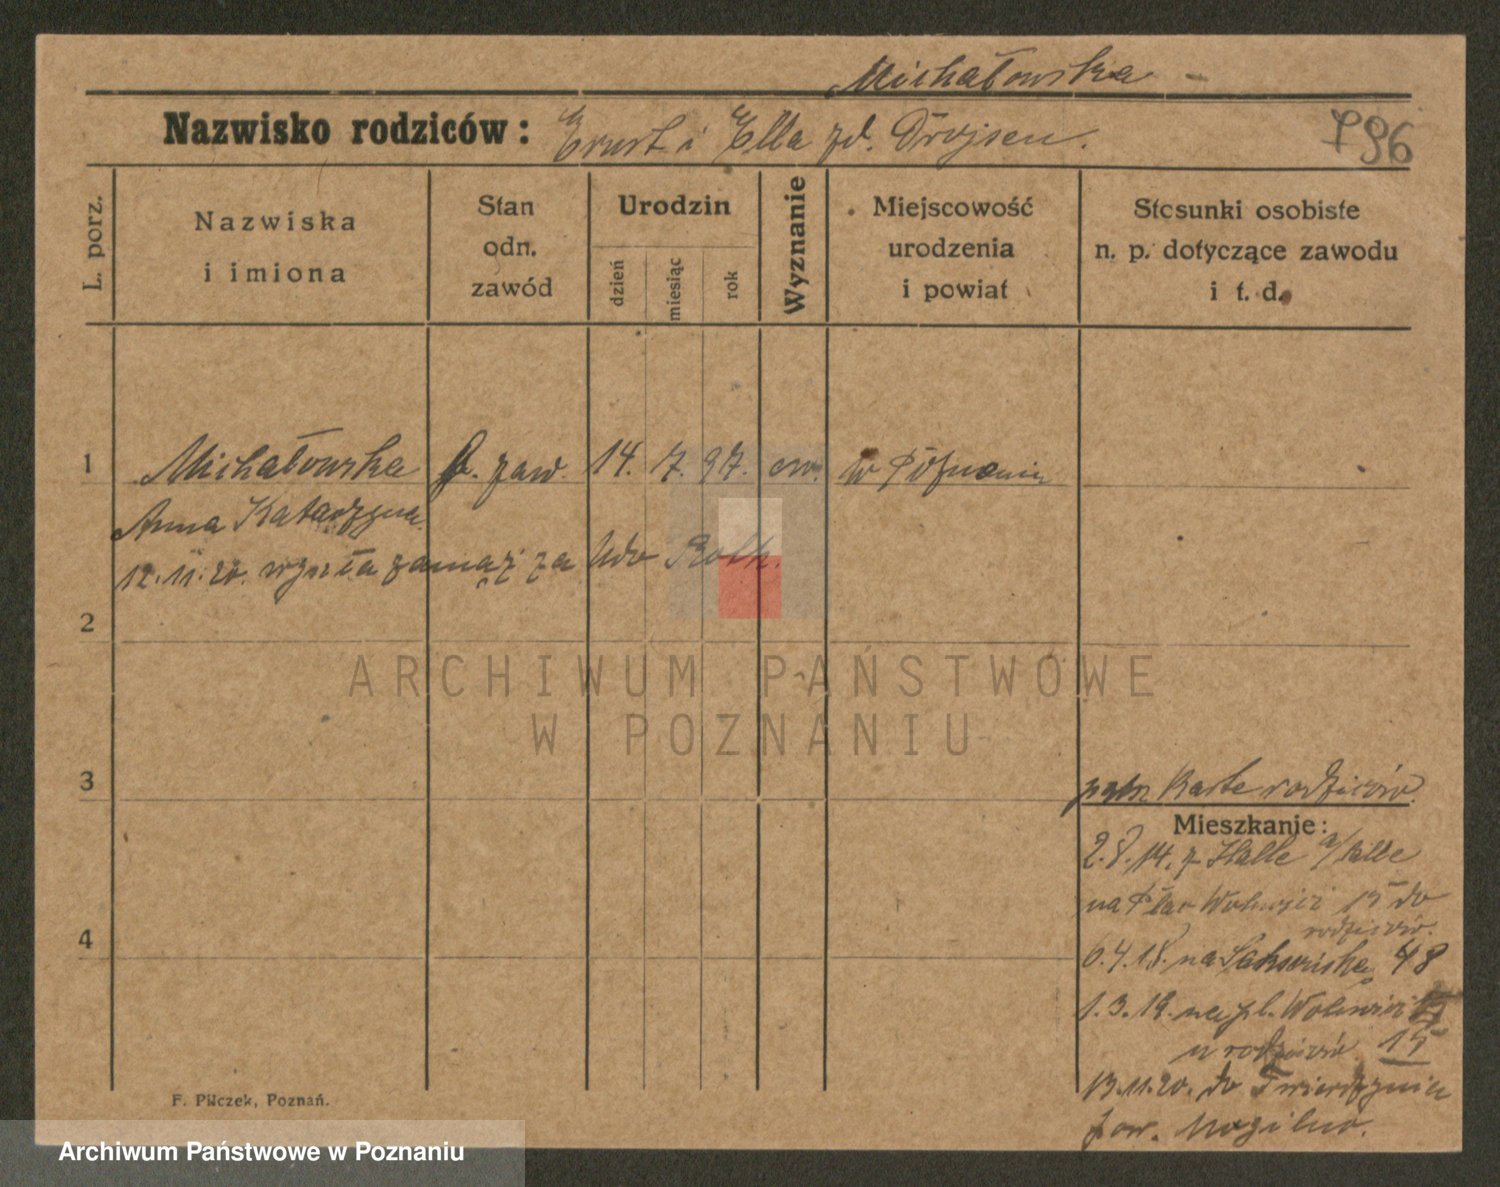 Michałowska
Nazwisko rodziców: Ernst i Ella zd. Droysen.
796
L. porz.
Nazwiska
i imiona
Stan
odn.
zawód
Urodzin
dzień
miesiąc
rok
Wyznanie
Miejscowość
urodzenia
i powiat
Stosunki osobiste
n. p. dotyczące zawodu
i t. d.
1 Michałowska b. zaw. 14. 7. 97. ew. w Poznaniu
Anna Katarzyna
12.11.20. wyszła zamąż za Udo Roth.
2
3
4
patrz Karte rodziców.
Mieszkanie:
2.8.14. z Halle a/Salle
na Plac Wolności 15 do
rodziców.
6.4.18. na 48
1.3.19. na pl. Wolności
u rodziców 15
13.11.20. do
pow. Mogilno.
F. Pilczek, Poznań.
ARCHIWUM PAŃSTWOWE
W POZNANIU
Archiwum Państwowe w Poznaniu